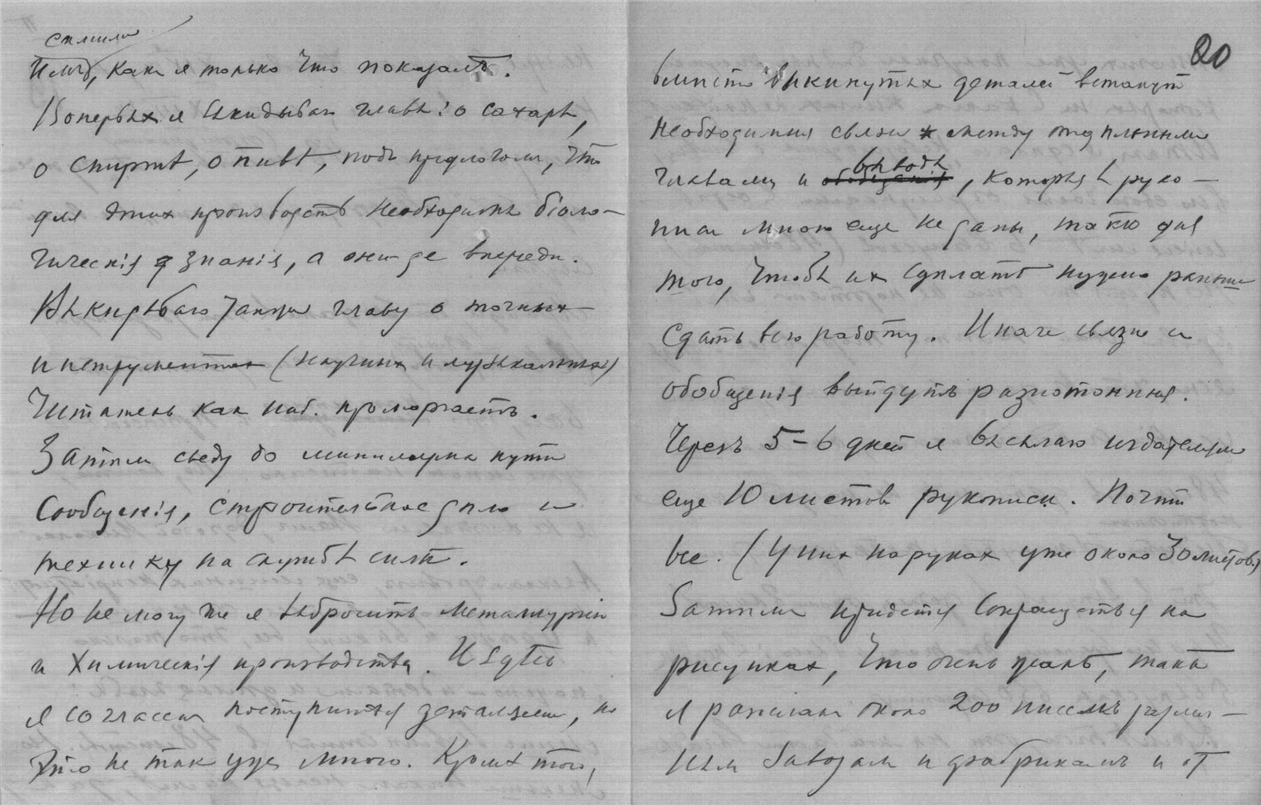 смысла
Имъ, какъ я только что показалъ.
Вопервых я выкидываю главы: о сахаръ,
о спиртѣ, о пивѣ, подъ предлогом, что
для этих производствъ необходимы біоло-
гическія знанія, а они де впереди.
Выкидываю также главу о точных
инструментах (научных и музыкальных)
Читатель как ниб. проморгаетъ.
Затѣм сведу до минимума пути
сообщенія, строительное дѣло и
технику на службѣ силъ.
Но не могу же я выбросить металлургію
и химическія производства. И здѣсь
я согласен поступиться деталями, но
это не так ужъ много. Кромѣ того,
20
вмѣсто выкинутых деталей встанут
необходимыя связи между отдѣльными
главами и выводы, которыя в руко-
писи мною еще не даны, так как для
того, чтобы их сдѣлать нужно раньше
сдать всю работу. Иначе связи и
обобщенія выйдутъ разнотонныя.
Через 5-6 дней я высылаю издателям
еще 10 листов рукописи. Почти
все. (У них на руках уже около 30 листов)
Затѣм придется сокращаться на
рисунках, что очень жаль, такъ
я разослал около 200 писемъ различ-
ным заводам и фабрикамъ и от